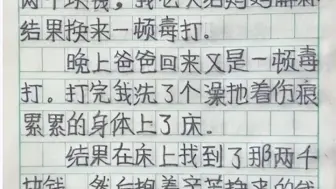 结果换来一顿毒打。
晚上爸爸回来又是一顿毒
打。打完我洗了个澡抱着伤痕
累累的身体上了床。
结果在床上找到了那两千